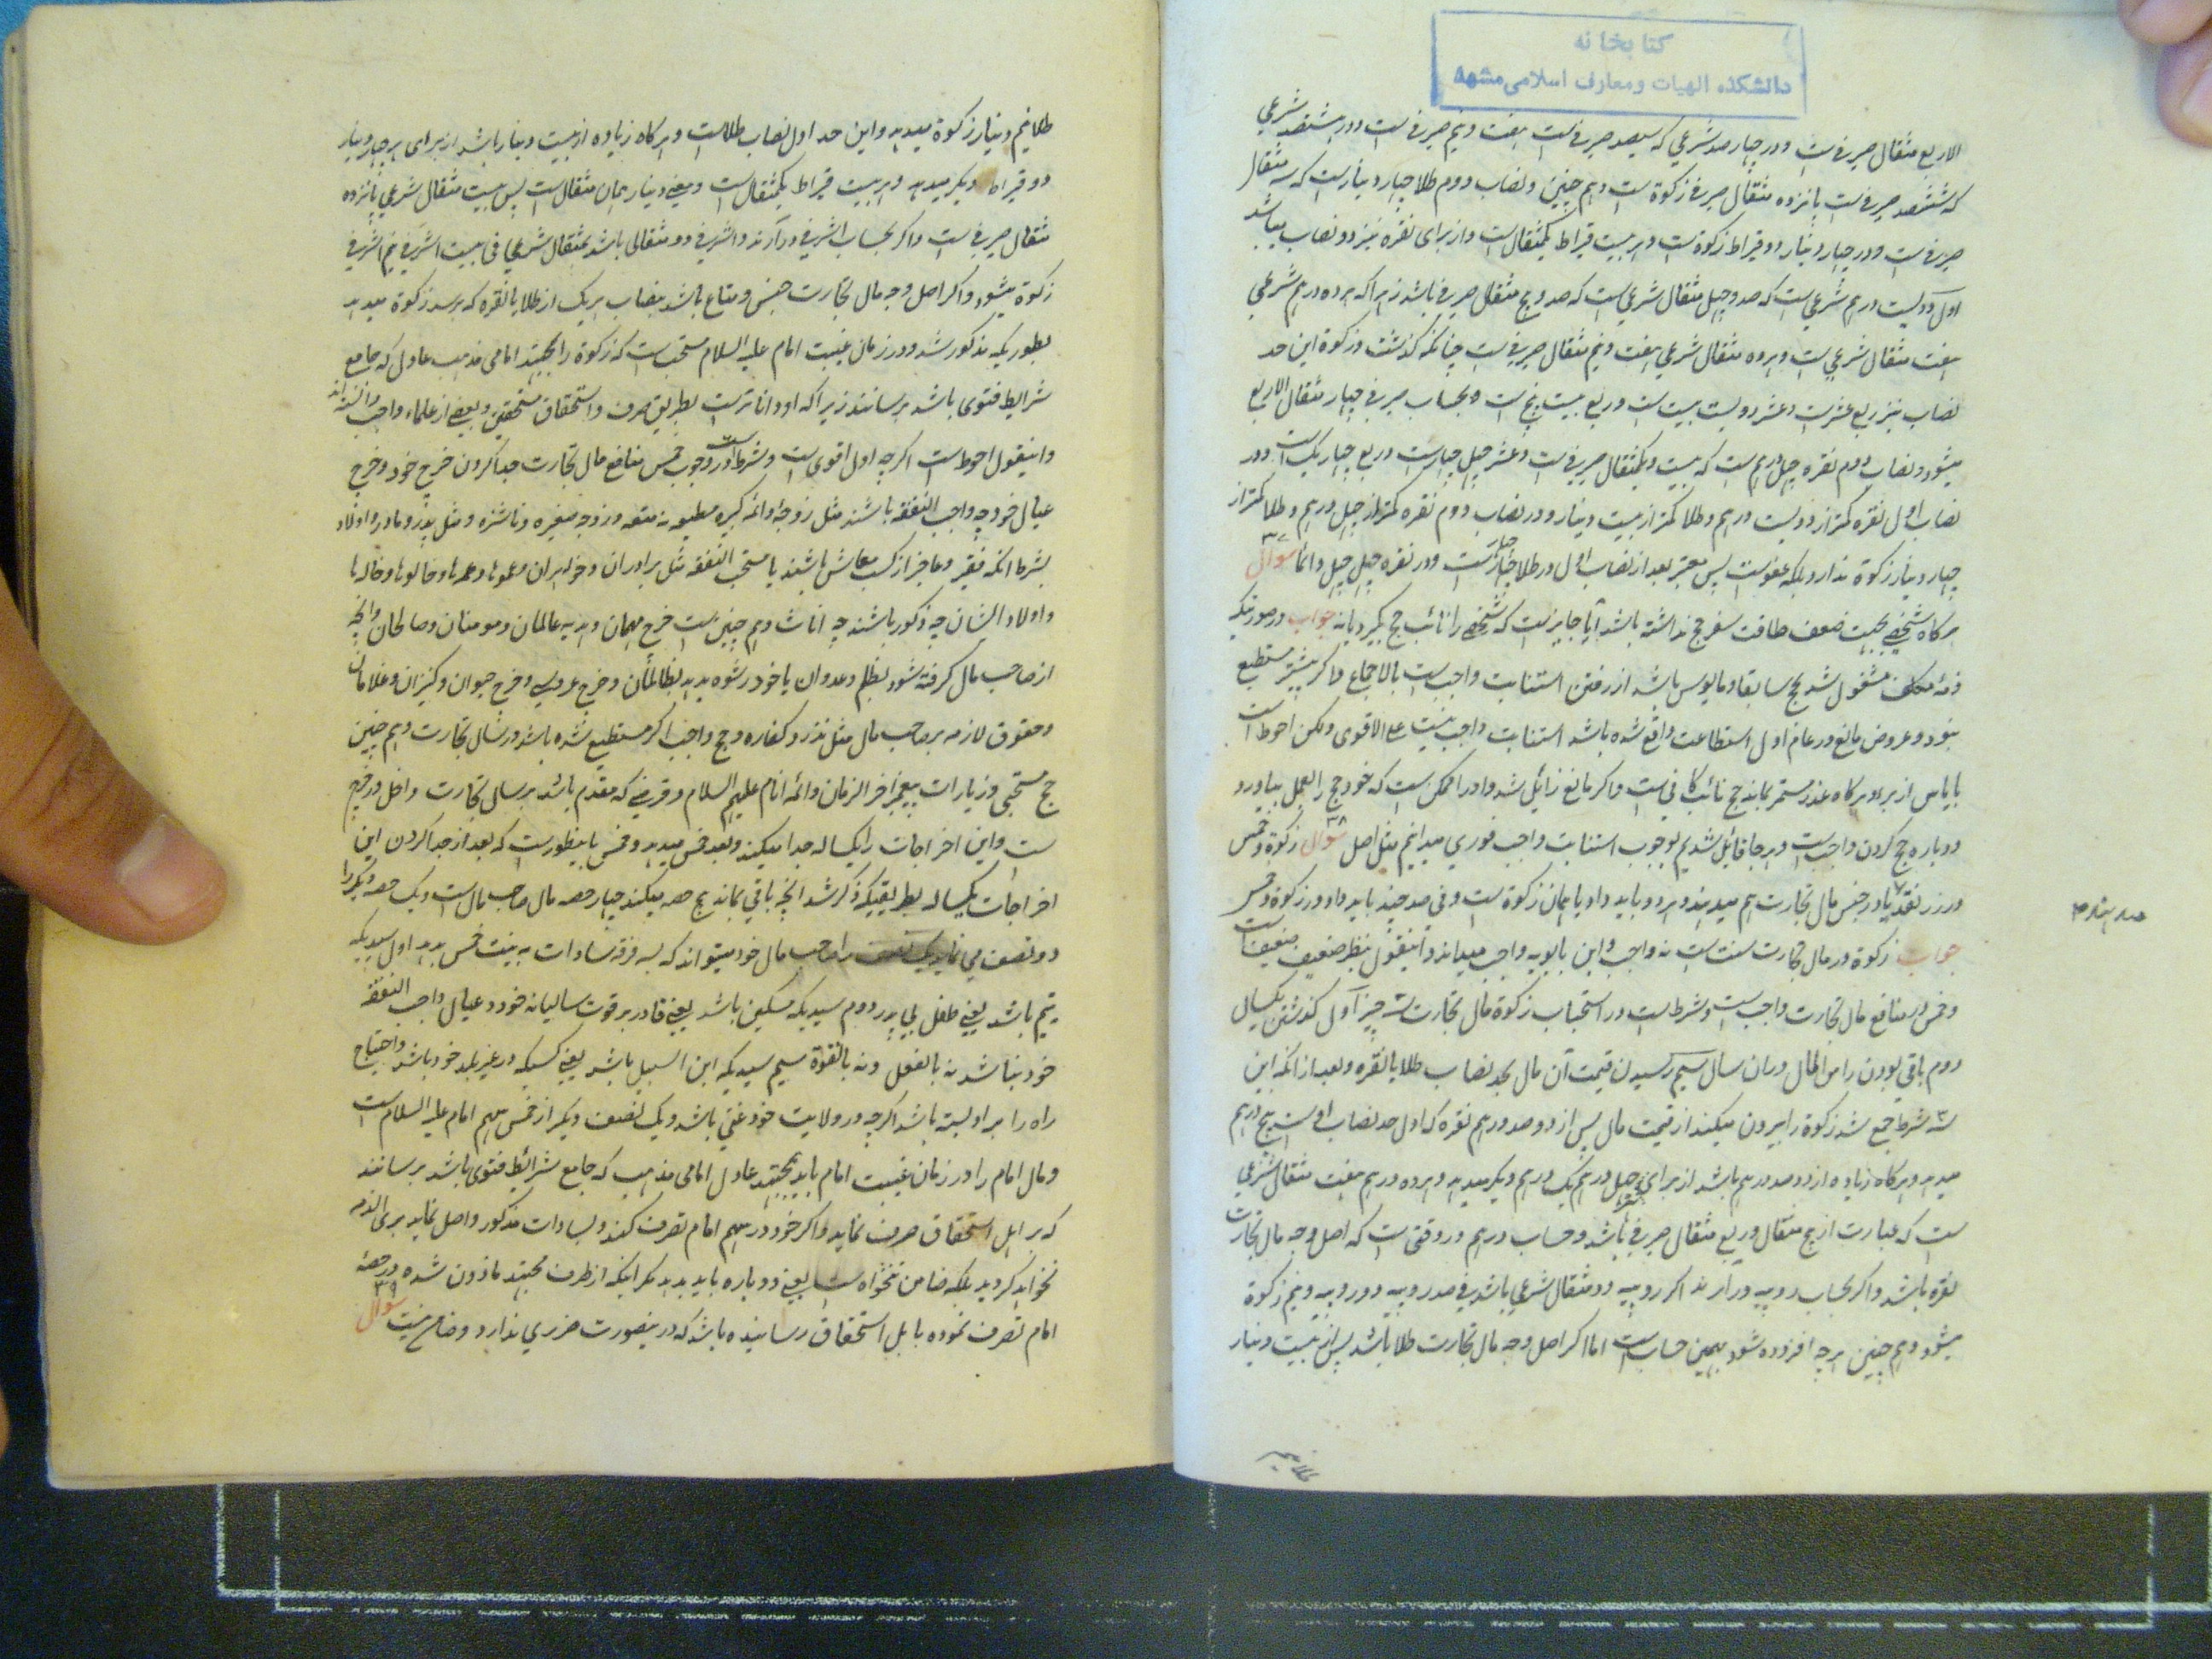 کتابخانه
دانشکده الهیات ومعارف اسلامی مشهد
الاربع مثقال صیرفیست ودر چهار صد شرعی که سیصد صیرفیست هفت ونیم صیرفیست ودر هشتصد شرعی
که ششصد صیرفیست پانزده مثقال صیرفی زکوة است وهم چنین ونصاب دوم طلا چهار دینارست که سه مثقال
صیرفیست ودر چهار دینار دو قیراط زکوتست وهر بیست قیراط یکمثقالست واز برای نقره نیز دو نصاب میباشد
اول دویست درهم شرعیست که صد وچهل مثقال شرعیست که صد وپنج مثقال صیرفی باشد زیرا که هر ده درهم شرعی
هفت مثقال شرعیست وهر ده مثقال شرعی هفت ونیم مثقال صیرفیست چنانکه گذشت وزکوة این حد
نصاب نیز ربع عشرست وعشر دویست بیست است وربع بیست پنج است وبحساب صیرفی چهار مثقال الاربع
میشود ونصاب دوم نقره چهل درهم است که بیست ویکمثقال صیرفیست وعشر چهل چهارست وربع چهار یکست ودر
نصاب اول نقره کمتر از دویست درهم وطلا کمتر از بیست دینار ودر نصاب دوم نقره کمتر از چهل درهم وطلا کمتر از
چهار دینار زکوة ندارد بلکه عفوست پس معتبر بعد از نصاب اول در طلا چهار چهارست ودر نقره چهل چهل دائما سوال ۳۷
هرکاه شخصی بجهت ضعف طاقت سفر حج نداشته باشد آیا جایزست که شخصی را نائب حج بگیرد یا نه جواب در صورتیکه
ذمهٔ مکلف مشغول شد بحج سابقا ومایوس باشد از رفتن استنابت واجبست بالاجماع واکر پیشتر مستطیع
نبود وعروض مانع در عام اول استطاعت واقع شده باشد استنابت واجب نیست علی الاقوی ولکن احوط است
با یاس از برء وهرکاه عذر مستمر بماند حج نائب کافیست واکر مانع زائل شد واورا ممکن است که خود حج را بعمل بیاورد
دوباره حج کردن واجبست وهر جا قائل شدیم بوجوب استنابت واجب فوری میدانیم مثل اصل سوال ۳۸ زکوة وخمس
در زر نقد یا در جنس مال تجارت هم میدهند وهر دو باید داد یا همان زکوة ست وفی صد چند باید داد در زکوة وخمس
جواب زکوة در مال تجارت سنت است نه واجب وابن بابویه واجب میداند واینقول بنظر ضعیف ضعیفست
وخمس در منافع مال تجارت واجبست وشرطست در استحباب زکوة مال تجارت سه چیز اول گذشتن یکسال
دوم باقی بودن راس المال دران سال سیم رسیدن قیمت آن مال بحد نصاب طلا یا نقره وبعد از آنکه این
سه شرط جمع شد زکوة را بیرون میکنند از قیمت مال پس از دو صد درهم نقره که اول حد نصاب اوست پنج درهم
میدهد وهرکاه زیاده از دو صد درهم باشد از برای هر چهل درهم یک درهم دیگر میدهد وهر ده درهم هفت مثقال شرعی
ست که عبارت از پنج مثقال وربع مثقال صیرفی باشد وحساب درهم در وقتی است که اصل وجه مال تجارت
نقره باشد واکر بحساب روپیه درارند اکر روپیه دو مثقال شرعی باشد فی صد روپیه دو روپیه ونیم زکوة
میشود وهم چنین هرچه افزوده شود بهمین حساب است اما اکر اصل وجه مال تجارت طلا باشد پس از بیست دینار
طلا نیم دینار زکوة میدهد واین حد اول نصاب طلاست وهرکاه زیاده از بیست دینار باشد از برای هر چهار دینار
دو قیراط دیگر میدهد وهر بیست قیراط یکمثقالست ومعنی دینار همان مثقالست پس بیست مثقال شرعی پانزده
مثقال صیرفیست واکر بحساب اشرفی درآرند واشرفی دو مثقالی باشد بمثقال شرعی فی بیست اشرفی نیم اشرفی
زکوة میشود واکر اصل وجه مال تجارت جنس ومتاع باشد بنصاب هر یک از طلا یا نقره که برسد زکوة میدهد
بطوریکه مذکور شد ودر زمان غیبت امام علیه السلام مستحب است که زکوة را بمجتهد امامی مذهب عادل که جامع
شرایط فتوی باشد برسانند زیرا که او داناترست بطریق صرف واستحقاق مستحقین وبعضی از علماء واجب دانسته اند
واینقول احوطست اکرچه اول اقویست وشرطست در وجوب خمس منافع مال تجارت جدا کردن خرج خود وخرج
عیال خود چه واجب النفقه باشند مثل زوجهٔ دائمه کبیره مطیعه نه متعه وزوجه صغیره وناشزه ومثل پدر ومادر واولاد
بشرط آنکه فقیر وعاجز از کسب معاش باشند یا مستحب النفقه مثل برادران وخواهران وعموها وعمه ها وخالوها وخاله ها
واولاد ایشان چه ذکور باشند چه اناث وهم چنین ست خرج مهمان وهدیه عالمان ومومنان وصالحان وآنچه
از صاحب مال کرفته شود بظلم وعدوان یا خود رشوه بدهد بظالمان وخرج عروسی وخرج حیوان وکنیزان وغلامان
وحقوق لازمه بر صاحب مال مثل نذر وکفاره وحج واجب اکر مستطیع شده باشد در سال تجارت وهم چنین
حج مستحبی وزیارات پیغمبر اخر الزمان وائمه انام علیهم السلام وقرضی که مقدم باشد بر سال تجارت داخل در خرج
ست واین اخراجات را یکساله جدا میکنند وبعد خمس میدهد وخمس باینطورست که بعد از جدا کردن این
اخراجات یکساله بطریقیکه ذکر شد آنچه باقی بماند پنج حصه میکند چهار حصه مال صاحب مالست ویک حصه دیگر را
دو نصف می نماید یک نصف را صاحب مال خود میتواند که بسه فرقه سادات به نیت خمس بدهد اول سیدیکه
یتیم باشد یعنی طفل بی پدر دوم سیدیکه مسکین باشد یعنی قادر بر قوت سالیانه خود وعیال واجب النفقه
خود نباشد نه بالفعل ونه بالقوة سیم سیدیکه ابن السبیل باشد یعنی کسیکه در غیر بلد خود باشد واحتیاج
راه را بر او بسته باشد اکرچه در ولایت خود غنی باشد ویک نصف دیگر از خمس سهم امام علیه السلام است
ومال امام را در زمان غیبت امام باید بمجتهد عادل امامی مذهب که جامع شرائط فتوی باشد برسانند
که بر اهل استحقاق صرف نماید واکر خود در سهم امام تصرف کند وبسادات مذکور واصل نماید بری الذمه
نخواهد کردید بلکه ضامن تنخواه ست یعنی دوباره باید بدهد مکر اینکه از طرف مجتهد ماذون شده در حصهٔ
امام تصرف نموده باهل استحقاق رسانیده باشد که درینصورت ضرری ندارد وضامن نیست سوال ۳۹